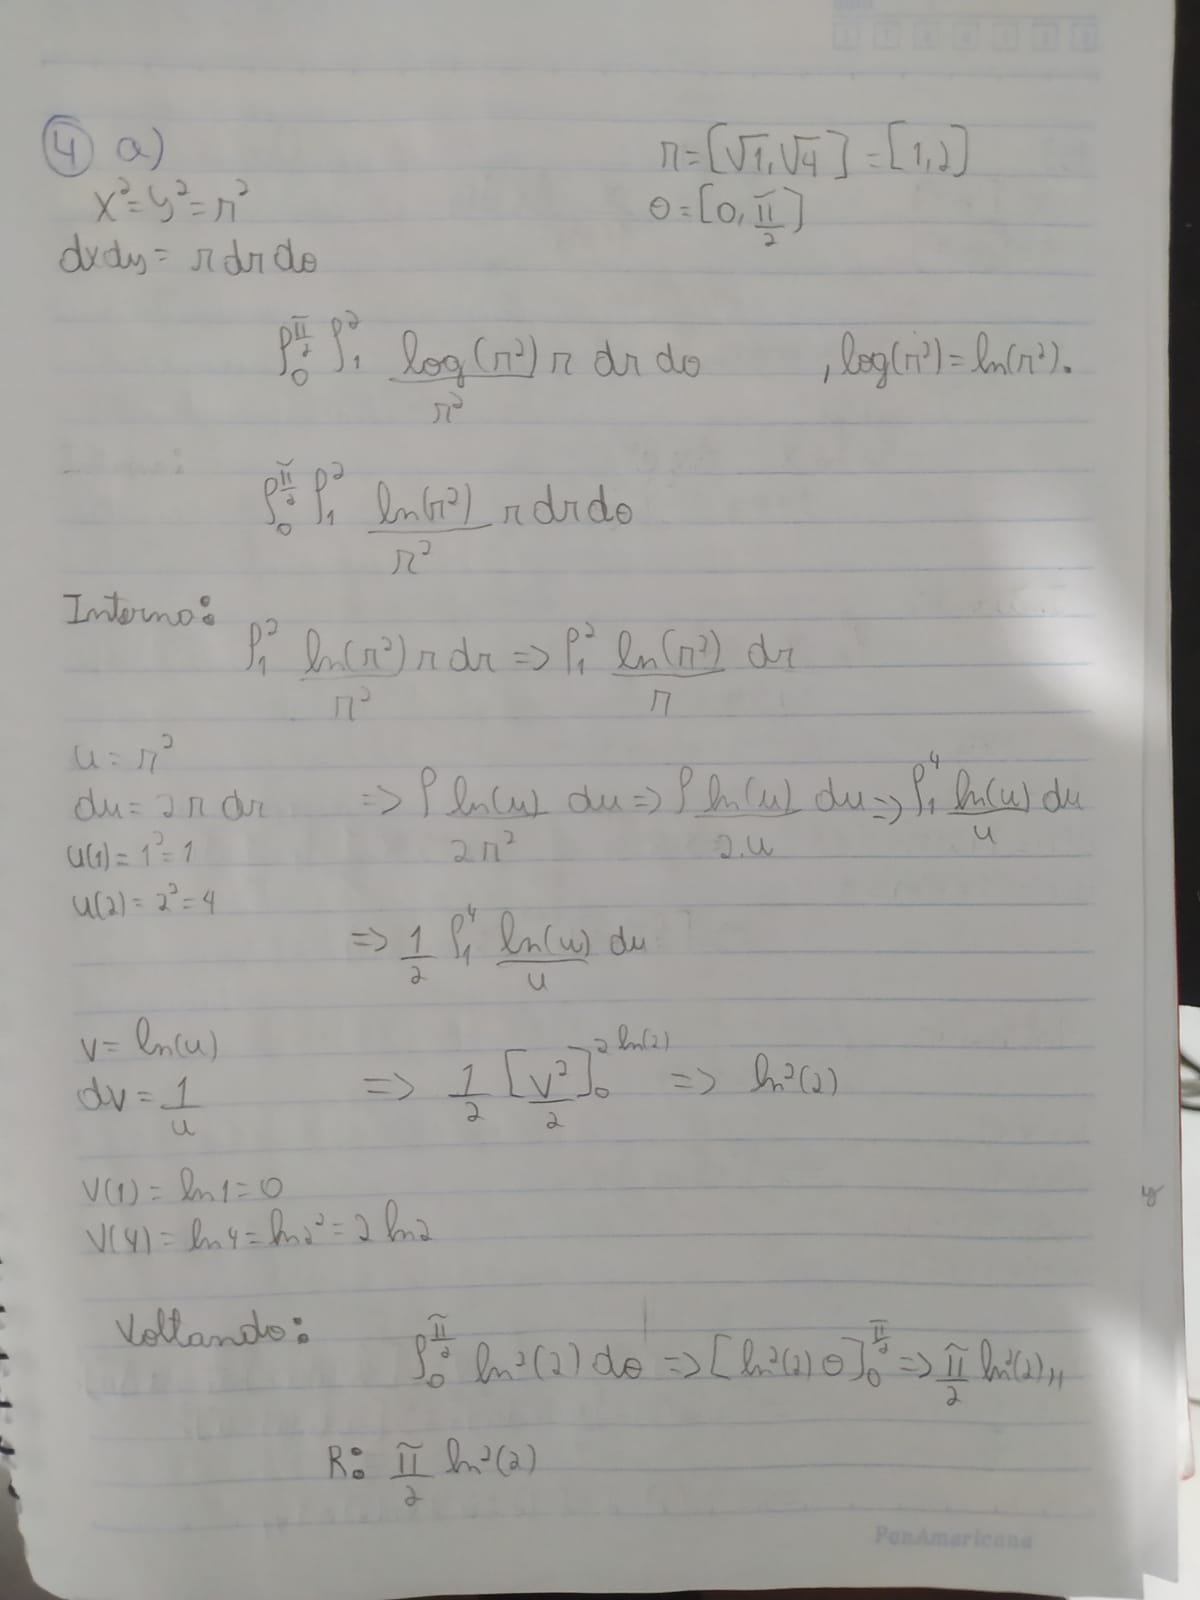 ④ a)
r=[√1,√4]=[1,2]
x²=y²=r²
θ=[0,π/2]
dxdy = r dr dθ
∫₀^(π/2) ∫₁² log(r²)/r² r dr dθ , log(r²)=ln(r²).
∫₀^(π/2) ∫₁² ln(r²)/r² r dr dθ
Interno:
∫₁² ln(r²)/r² r dr => ∫₁² ln(r²)/r dr
u = r²
du = 2r dr => ∫ ln(u)/2r² du => ∫ ln(u)/2.u du => ∫₁⁴ ln(u)/u du
u(1) = 1² = 1
u(2) = 2² = 4
=> 1/2 ∫₁⁴ ln(u)/u du
v = ln(u)
dv = 1/u => 1/2 [v²/2]₀^(2 ln(2)) => ln²(2)
v(1) = ln1 = 0
v(4) = ln4 = ln2² = 2 ln2
Voltando:
∫₀^(π/2) ln²(2) dθ => [ln²(2) θ]₀^(π/2) => π/2 ln²(2)//
R: π/2 ln²(2)
PanAmericana